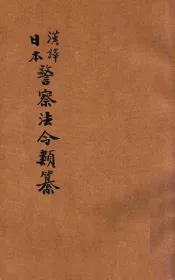 漢譯
日本
警察法令類纂